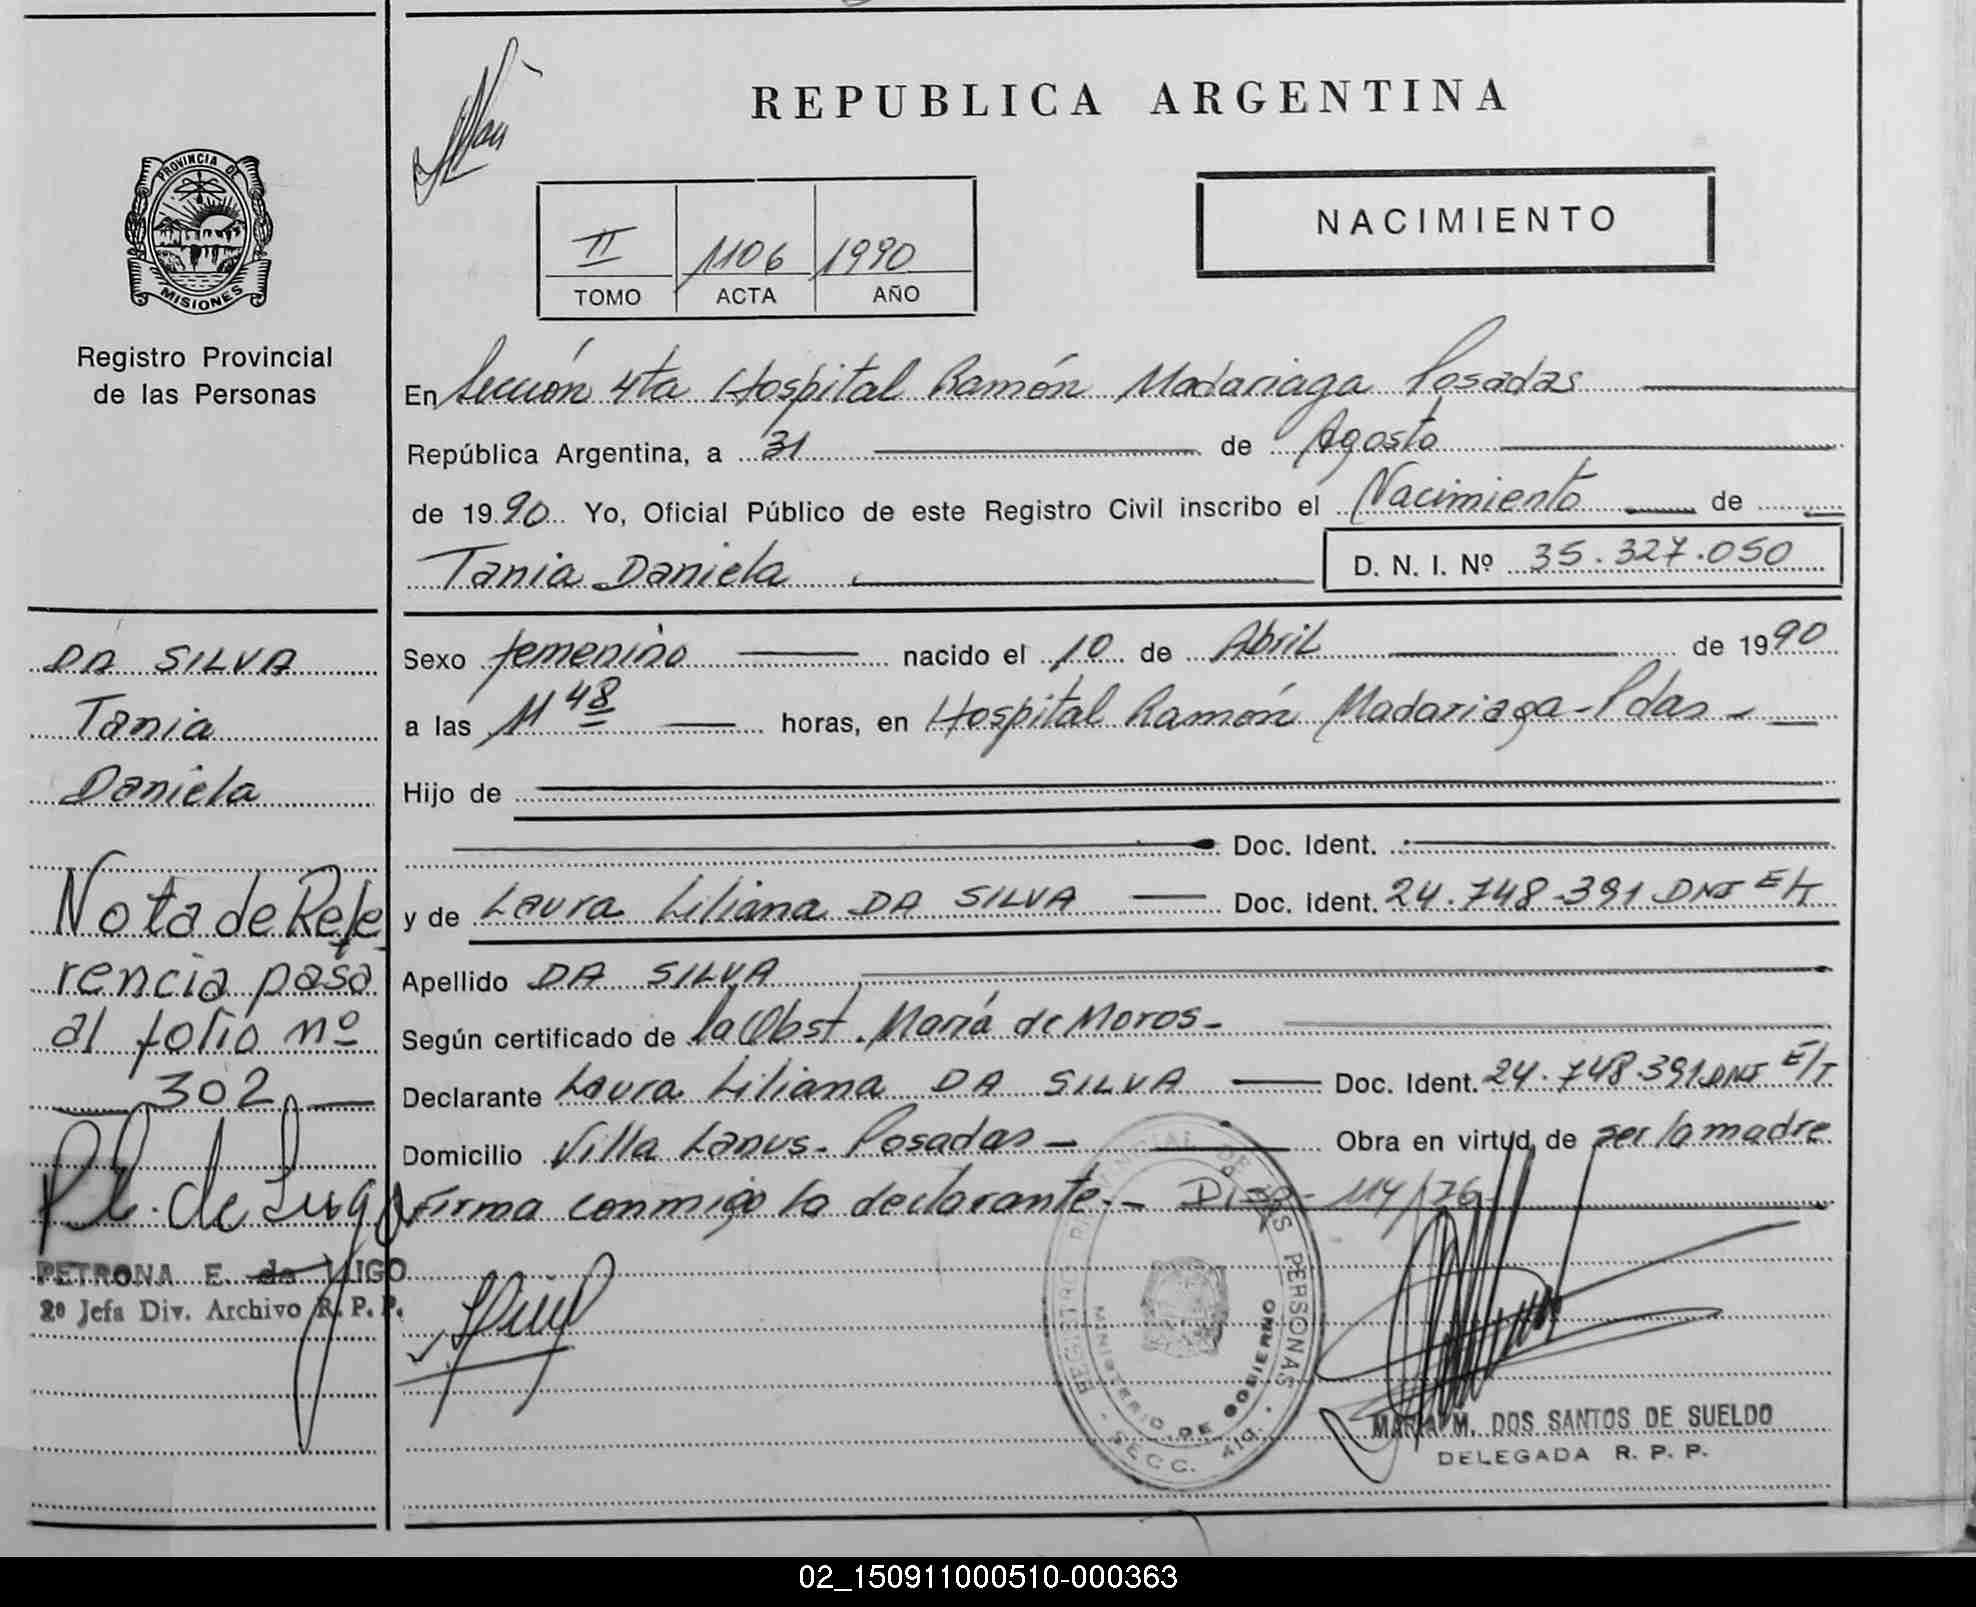 REPUBLICA ARGENTINA
NACIMIENTO
II 1106 1990
TOMO ACTA AÑO
PROVINCIA DE
MISIONES
Registro Provincial
de las Personas
En Sección 4ta Hospital Ramón Madariaga Posadas
República Argentina, a 31 de Agosto
de 1990 Yo, Oficial Público de este Registro Civil inscribo el Nacimiento de
Tania Daniela D. N. I. Nº 35.327.050
Sexo femenino nacido el 10 de Abril de 1990
a las 11 48 horas, en Hospital Ramón Madariaga - Pdas -
Hijo de
Doc. Ident.
y de Laura Liliana DA SILVA Doc. Ident. 24.748.391 DNI E/T
Apellido DA SILVA
Según certificado de la Obst. María de Moros -
Declarante Laura Liliana DA SILVA Doc. Ident. 24.748.391 DNI E/T
Domicilio Villa Lanus - Posadas - Obra en virtud de ser la madre
Firma conmigo la declarante. - 114/76 -
DA SILVA
Tania
Daniela
Nota de Refe
rencia pasa
al folio nº
302
P.E. de Lugo
PETRONA E. de LUGO
2º Jefa Div. Archivo R. P. P.
REGISTRO PROVINCIAL DE LAS PERSONAS
MINISTERIO DE GOBIERNO
SECC. 4ta.
MARIA M. DOS SANTOS DE SUELDO
DELEGADA R. P. P.
02_150911000510-000363